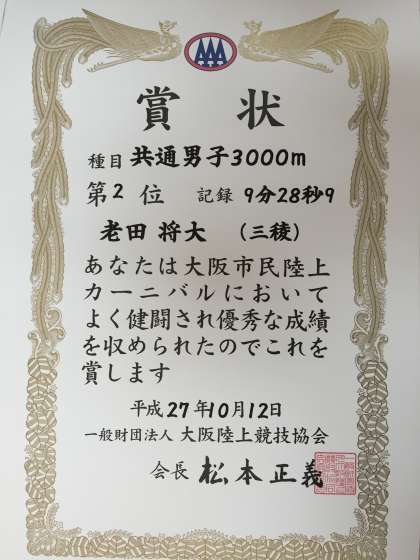 AAA
賞状
種目 共通男子3000m
第2位 記録 9分28秒9
老田 将大 (三稜)
あなたは大阪市民陸上
カーニバルにおいて
よく健闘され優秀な成績
を収められたのでこれを
賞します
平成27年10月12日
一般財団法人 大阪陸上競技協会
会長 松本正義